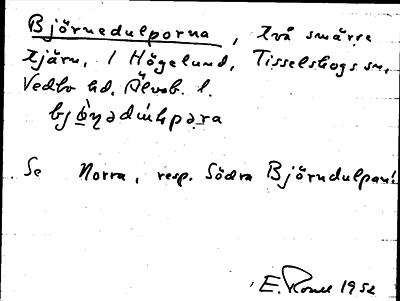 Björnedulporna, två smärre
tjärn, i Högelund, Tisselskogs sn,
Vedbo hd, Älvsb. l.
Se Norra, resp. Södra Björndulpan!
1952